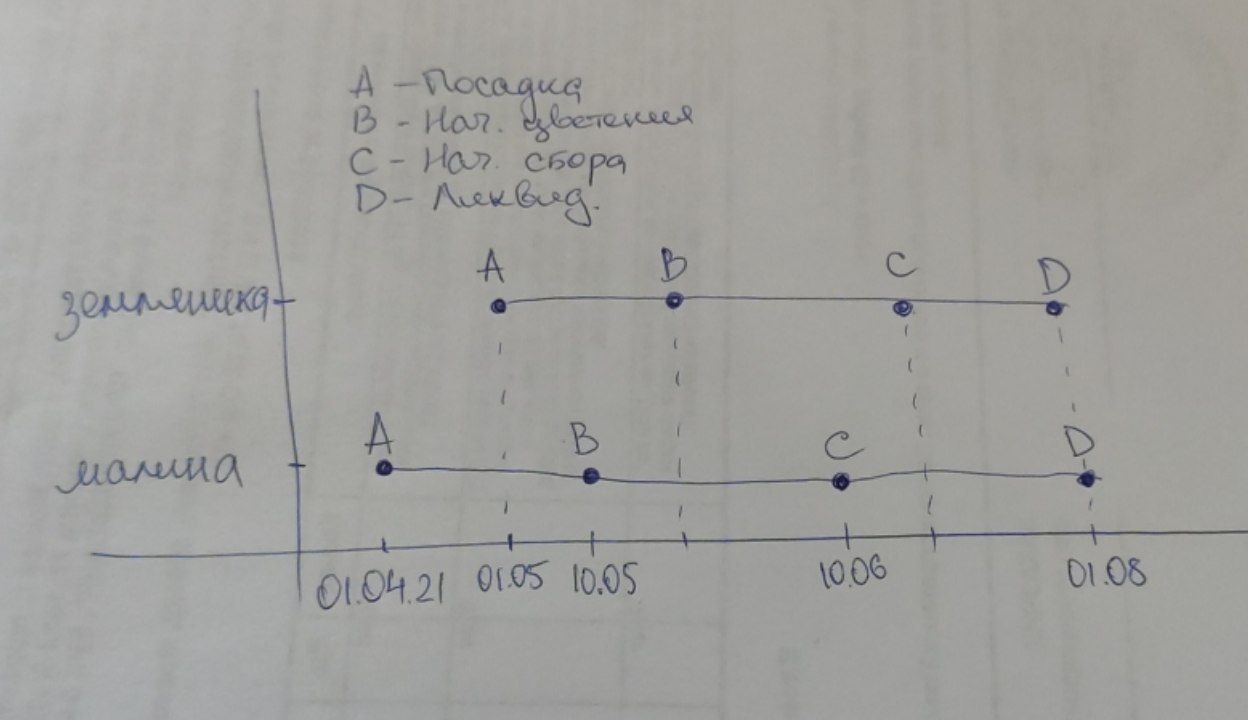 A – Посадка
B - Нач. цветения
C - Нач. сбора
D - Ликвид.
A B C D
земляника
A B C D
малина
01.04.21 01.05 10.05 10.06 01.08